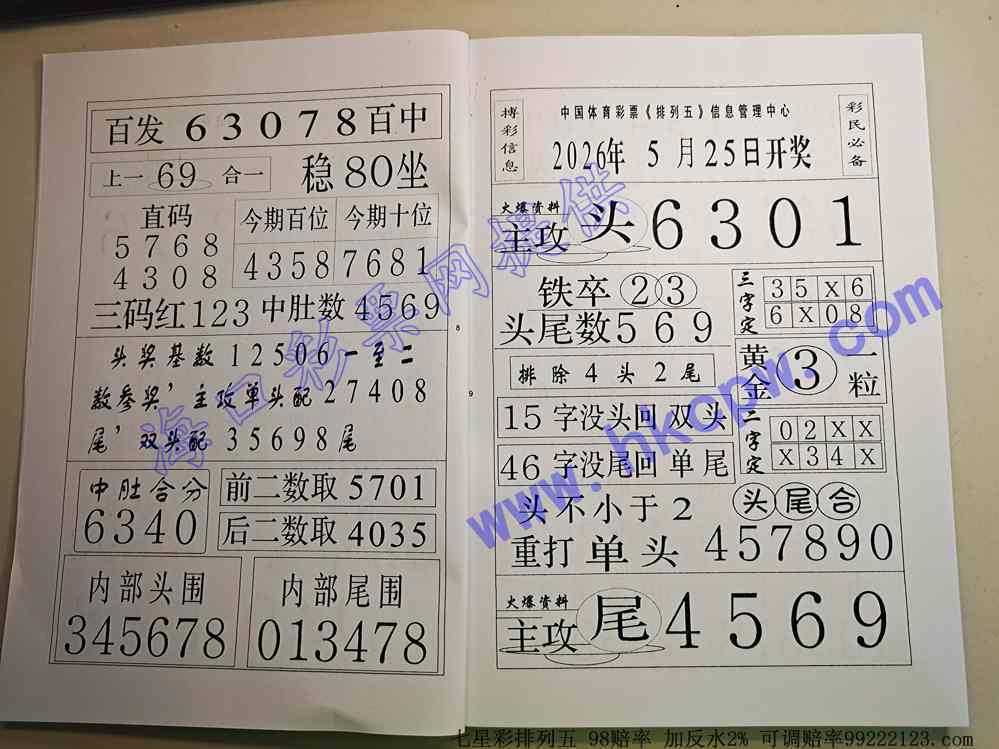 百发 63078 百中
上一 69 合一
稳 80 坐
直码
5768
4308
今期百位 今期十位
4358 7681
三码红 123 中肚数 4569
头奖基数 12506 一至二
数参奖’主攻单头配 27408
尾’双头配 35698 尾
中肚合分
6340
前二数取 5701
后二数取 4035
内部头围
345678
内部尾围
013478
8
9
搏彩信息
中国体育彩票《排列五》信息管理中心
2026年 5 月 25日开奖
彩民必备
火爆资料
主攻 头 6301
铁卒 23
头尾数 569
三字定
3 5 X 6
6 X 0 8
排除 4 头 2 尾
黄金 3 一粒
15 字没头回 双 头
46 字没尾回 单 尾
二字定
0 2 X X
X 3 4 X
头 不 小 于 2
头尾合
重打 单 头 457890
火爆资料
主攻 尾 4569
海口彩票网提供
www.hkcpw.com
七星彩排列五 98赔率 加反水2% 可调赔率99222123.com